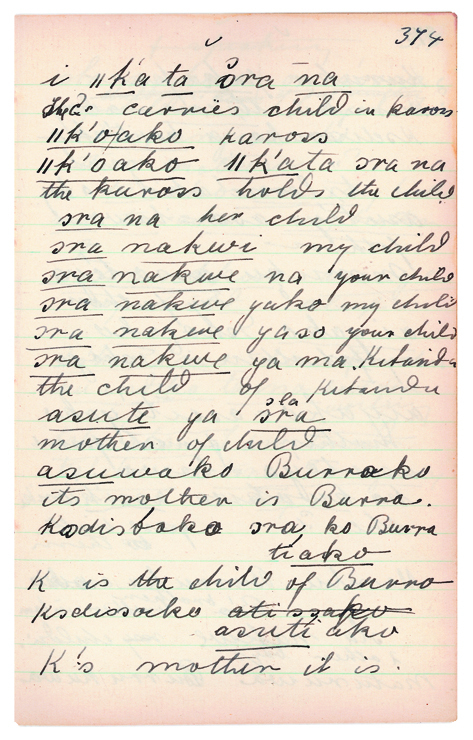 374
i ǁk'a ta sra na
She carries child in kaross
ǁk'o/ako kaross
ǁk'oako ǁk'ata sra na
the kaross holds the child
sra na her child
sra nakwi my child
sra nakwe na your child
sra nakwe yako my child
sra nakwe yaso your child
sra nakwe ya ma Kitandu
the child of Kitandu
sla
asute ya sra
mother of child
asuwako Burrako
its mother is Burra.
Kodisboko sra ko Burra
tiako
K is the child of Burro
Ksdissoiko ati ssako
asuti ako
K's mother it is.